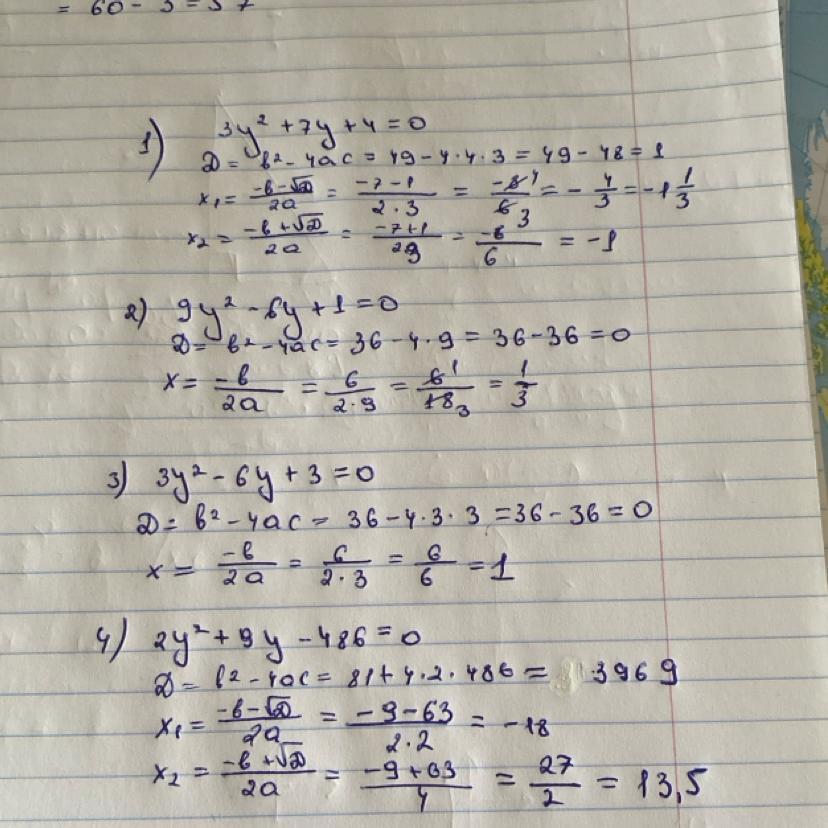 = 60 - 3 = 57
1) 3y² + 7y + 4 = 0
D = b² - 4ac = 49 - 4·4·3 = 49 - 48 = 1
x₁ = (-b-√D)/(2a) = (-7-1)/(2·3) = -8/6 = -4/3 = -1 1/3
x₂ = (-b+√D)/(2a) = (-7+1)/(2·3) = -6/6 = -1
2) 9y² - 6y + 1 = 0
D = b² - 4ac = 36 - 4·9 = 36 - 36 = 0
x = -b/(2a) = 6/(2·9) = 6/18 = 1/3
3) 3y² - 6y + 3 = 0
D = b² - 4ac = 36 - 4·3·3 = 36 - 36 = 0
x = -b/(2a) = 6/(2·3) = 6/6 = 1
4) 2y² + 9y - 486 = 0
D = b² - 4ac = 81 + 4·2·486 = 3969
x₁ = (-b-√D)/(2a) = (-9-63)/(2·2) = -18
x₂ = (-b+√D)/(2a) = (-9+63)/4 = 27/2 = 13,5